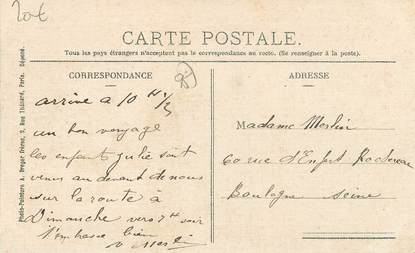 20€
CARTE POSTALE.
Tous les pays étrangers n'acceptent pas la correspondance au recto. (Se renseigner à la poste).
CORRESPONDANCE
ADRESSE
arrivé a 10 H 1/2
un bon voyage
les enfants julie sont
venus au devant de nous
sur la route à
Dimanche vers 7 H soir
t'embrasse bien
Merlin
Madame Merlin
60 rue d'Enfert Rochereau
Boulogne Seine
Photo-Peinture A. Breger Frères, 9, Rue Thénard, Paris. Déposé.